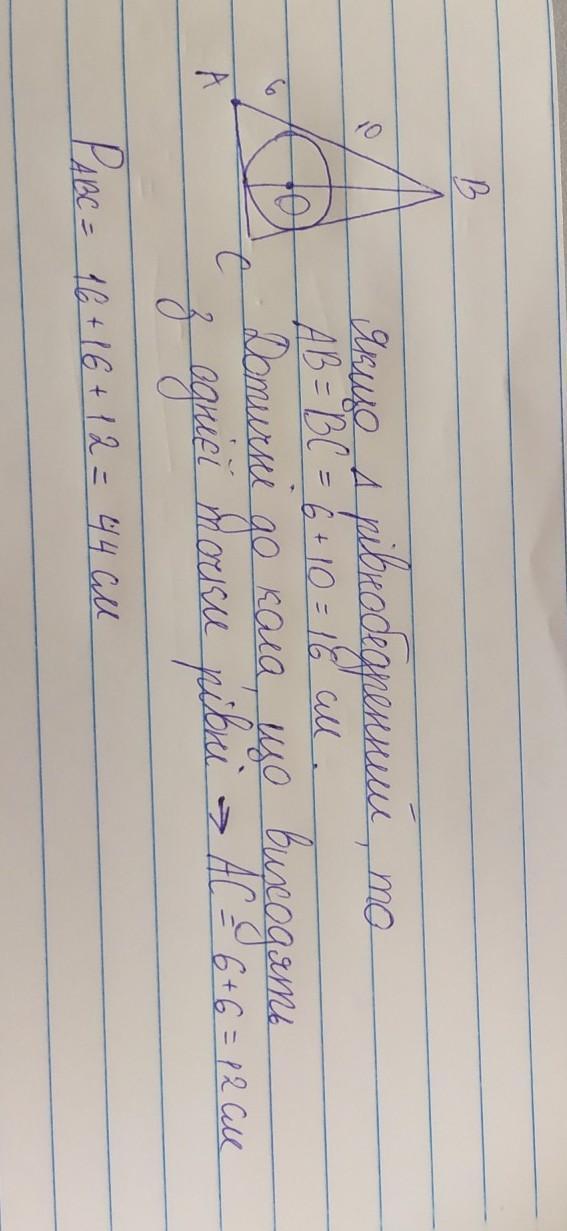 B
10
6
A
O
C
Якщо Δ рівнобедренний, то
AB = BC = 6 + 10 = 16 см.
Дотичні до кола, що виходять
з однієї точки рівні → AC = 6 + 6 = 12 см
P ABC = 16 + 16 + 12 = 44 см